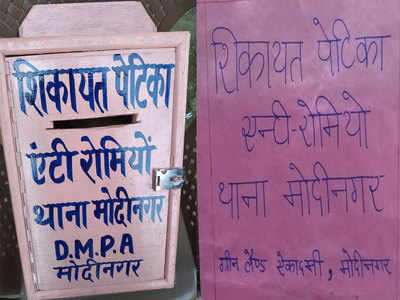 शिकायत पेटिका
एंटी रोमियों
थाना मोदीनगर
D.M.P.A
मोदीनगर
शिकायत पेटिका
एन्टी-रोमियो
थाना मोदीनगर
ग्रीन लैण्ड ऐकाडमी, मोदीनगर